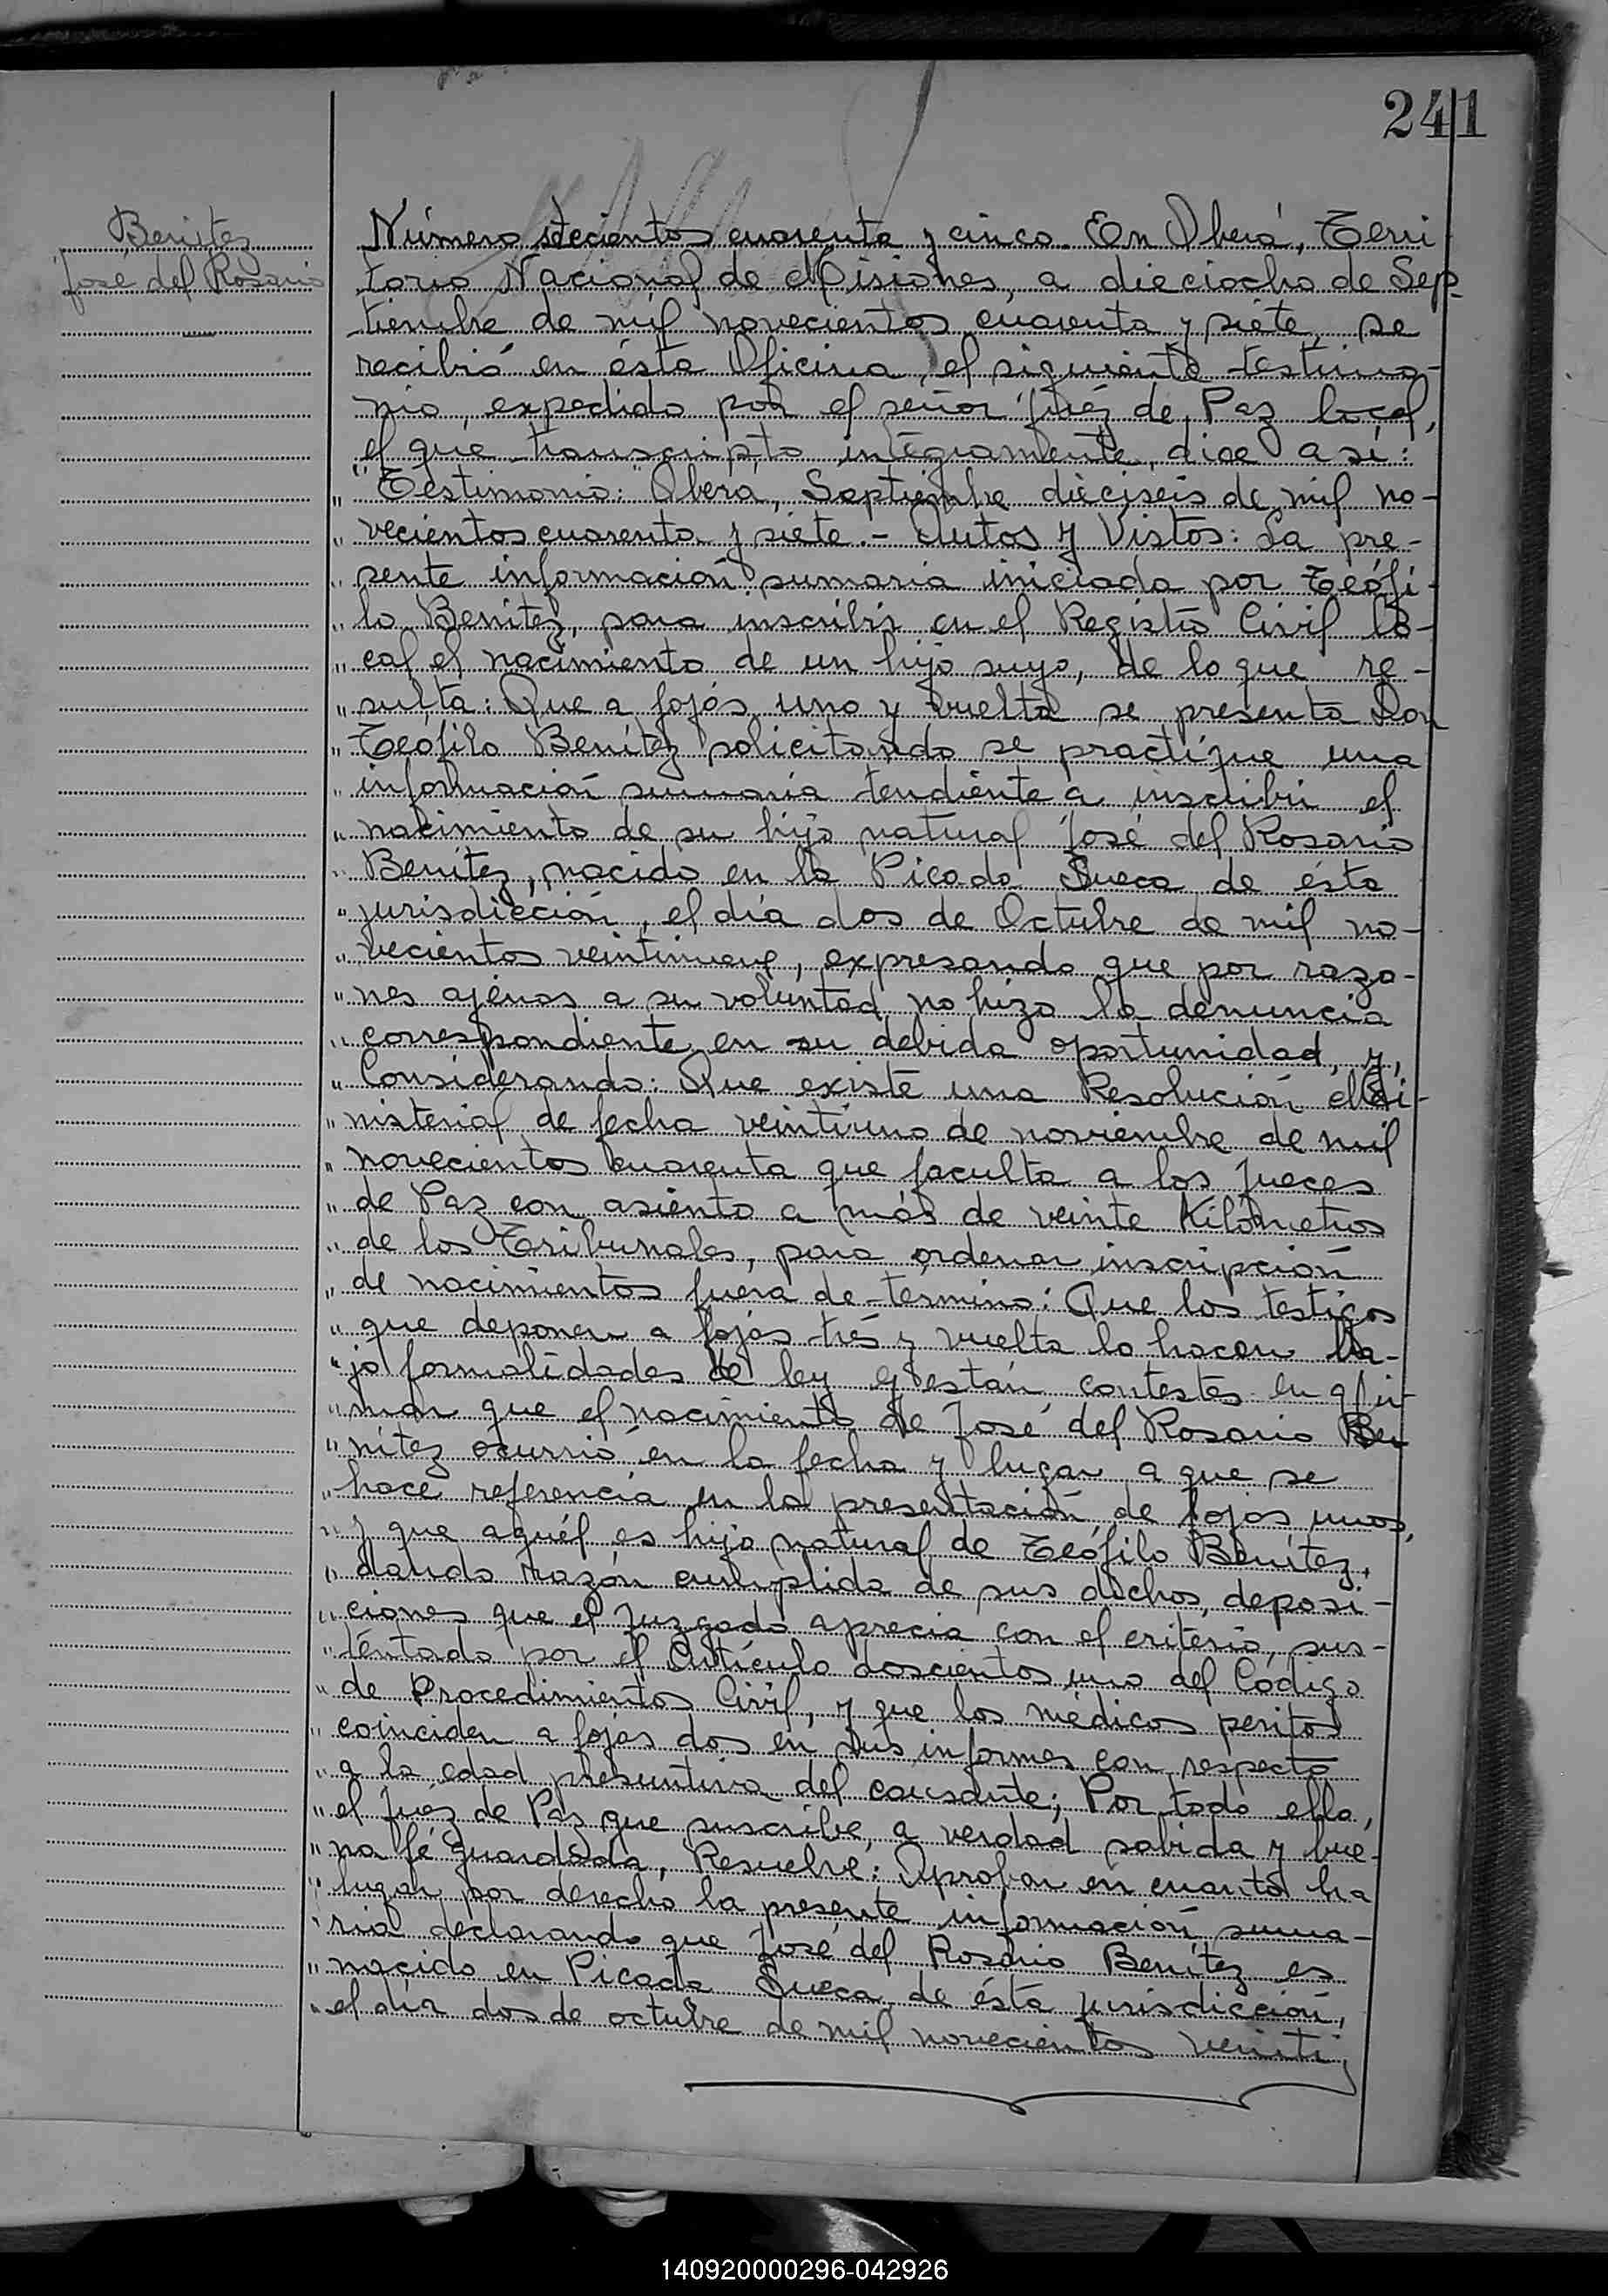 241
Benitez
José del Rosario
Número setecientos cuarenta y cinco. En Oberá, Terri-
torio Nacional de Misiones, a dieciocho de Sep-
tiembre de mil novecientos cuarenta y siete, se
recibió en ésta Oficina, el siguiente testimo-
nio, expedido por el señor Juéz de Paz local,
el que transcripto integramente, dice así:
" "Testimonio: Oberá, Septiembre dieciseis de mil no-
" vecientos cuarenta y siete.- Autos y Vistos: La pre-
" sente información sumaria iniciada por Teófi-
" lo Benítez, para inscribir en el Registro Civil lo-
" cal el nacimiento de un hijo suyo, de lo que re-
" sulta: Que a fojas uno y vuelta se presenta Don
" Teófilo Benítez solicitando se practique una
" información sumaria tendiente a inscribir el
" nacimiento de su hijo natural José del Rosario
" Benítez, nacido en la Picada Sueca de ésta
" jurisdicción, el día dos de Octubre de mil no-
" vecientos veintinueve, expresando que por razo-
" nes ajenas a su voluntad no hizo la denuncia
" correspondiente en su debida oportunidad, y,
" Considerando: Que existe una Resolución Mi-
" nisterial de fecha veintiuno de noviembre de mil
" novecientos cuarenta que faculta a los Jueces
" de Paz con asiento a más de veinte Kilómetros
" de los Tribunales, para ordenar inscripción
" de nacimientos fuera de término: Que los testigos
" que deponen a fojas trés y vuelta lo hacen ba-
" jo formalidades de ley y están contestes en afir-
" mar que el nacimiento de José del Rosario Be-
" nítez ocurrió en la fecha y lugar a que se
" hace referencia en la presentación de fojas unos,
" y que aquél es hijo natural de Teófilo Benítez,
" dando razón cumplida de sus dichos, deposi-
" ciones que el Juzgado aprecia con el criterio, sus-
" tentado por el Artículo doscientos uno del Código
" de Procedimientos Civil, y que los médicos peritos
" coinciden a fojas dos en sus informes con respecto
" a la edad presuntiva del causante; Por todo ello,
" el Juez de Paz que suscribe, a verdad sabida y bue-
" na fé guardada, Resuelve: Aprobar en cuanto ha
" lugar por derecho la presente información suma-
" ria declarando que José del Rosario Benítez es
" nacido en Picada Sueca de ésta jurisdicción,
" el día dos de octubre de mil novecientos veinti-
140920000296-042926